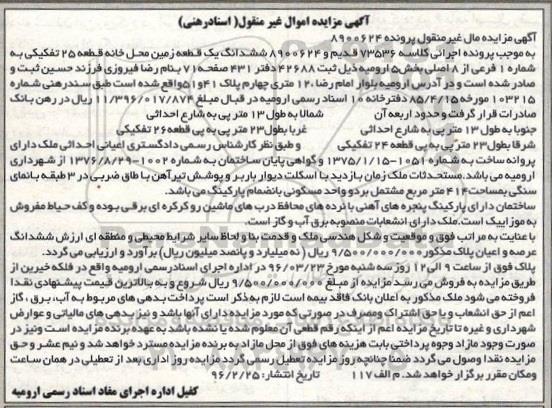 آگهی مزایده اموال غیر منقول( اسنادرهنی)
آگهی مزایده مال غیرمنقول پرونده ۸۹۰۰۶۲۴
به موجب پرونده اجرائی کلاسه ۷۳۵۳۶ قدیم و ۸۹۰۰۶۲۴ ششدانگ یک قطعه زمین محل خانه قطعه ۲۵ تفکیکی به
شماره ۱ فرعی از ۸ اصلی بخش۵ ارومیه ذیل ثبت ۴۲۶۸۸ دفتر ۴۳۱ صفحه ۷۱ بنام رضا فیروزی فرزند حسین ثبت و
صادر شده است و در آدرس ارومیه بلوار امام رضا ،۱۲ متری چهارم پلاک ۴۱و۵۱واقع شده است طبق سندرهنی شماره
۱۰۳۲۱۵ مورخه ۸۵/۴/۱۵ دفترخانه ۱۰ اسناد رسمی ارومیه در قبال مبلغ ۱۱/۳۹۶/۰۱۷/۸۷۴ ریال در رهن بانک
صادرات قرار گرفت و حدود اربعه آن شمالا به طول ۱۳ متر پی به شارع احداثی
جنوبا به طول ۱۳ متر پی به پی شارع احداثی غربا بطول ۲۳ متر پی به پی قطعه ۲۶ تفکیکی
شرقا بطول ۲۳ متر پی به پی قطعه ۲۴ تفکیکی و طبق نظر کارشناس رسمی دادگستری اعیانی احداثی ملک دارای
پروانه ساخت به شماره ۱۰۵۱-۱۳۷۵/۱/۱۵ و گواهی پایان ساختمان به شماره ۱۰۰۲-۱۳۷۶/۸/۲۹ از شهرداری
ارومیه می باشد.مستحدثات ملک زمان بازدید با اسکلت دیوار باربر و پوشش تیرآهن با طاق ضربی در ۳ طبقه بانمای
سنگی بمساحت ۴۱۴ متر مربع مشتمل بردو واحد مسکونی بانضمام پارکینگ می باشد.
ساختمان دارای پارکینگ پنجره های آهنی با نرده های محافظ درب های ماشین رو کرکره ای برقی بوده و کف حیاط مفروش
به موزاییک است.ملک دارای انشعابات منصوبه برق آب و گاز است.
با عنایت به مراتب فوق و موقعیت و شکل هندسی ملک و قدمت بنا و لحاظ سایر شرایط محیطی و منطقه ای ارزش ششدانگ
عرصه و اعیان پلاک مذکور ۹/۵۰۰/۰۰۰/۰۰۰ ریال (نه میلیارد و پانصد میلیون ریال) برآورد و ارزیابی می گردد.
پلاک فوق از ساعت ۹ الی ۱۲ روز سه شنبه مورخ ۹۶/۰۳/۲۳ در اداره اجرای اسنادرسمی ارومیه واقع در فلکه خیرین از
طریق مزایده به فروش می رسد مزایده از مبلغ ۹/۵۰۰/۰۰۰/۰۰۰ ریال شروع و به بالاترین قیمت پیشنهادی نقدا
فروخته می شود ملک مذکور به اعلان بانک فاقد بیمه است لازم به ذکر است پرداخت بدهی های مربوط به آب، برق ، گاز
اعم از حق انشعاب و یا حق اشتراک و مصرف در صورتی که مورد مزایده دارای آنها باشد و نیز بدهی های مالیاتی و عوارض
شهرداری و غیره تا تاریخ مزایده اعم از اینکه رقم قطعی آن معلوم شده یا نشده باشد به عهده برنده مزایده است ونیز در
صورت وجود مازاد وجوه پرداختی بابت هزینه های فوق از محل مازاد به برنده مزایده مسترد خواهد شد و نیم عشر و حق
مزایده نقدا وصول می گردد ضمنا چنانچه روز مزایده تعطیل رسمی گردد مزایده روز اداری بعد از تعطیلی در همان ساعت
ومکان مقرر برگزار خواهد شد. م الف ۱۱۷ تاریخ انتشار: ۹۶/۲/۲۵
کفیل اداره اجرای مفاد اسناد رسمی ارومیه